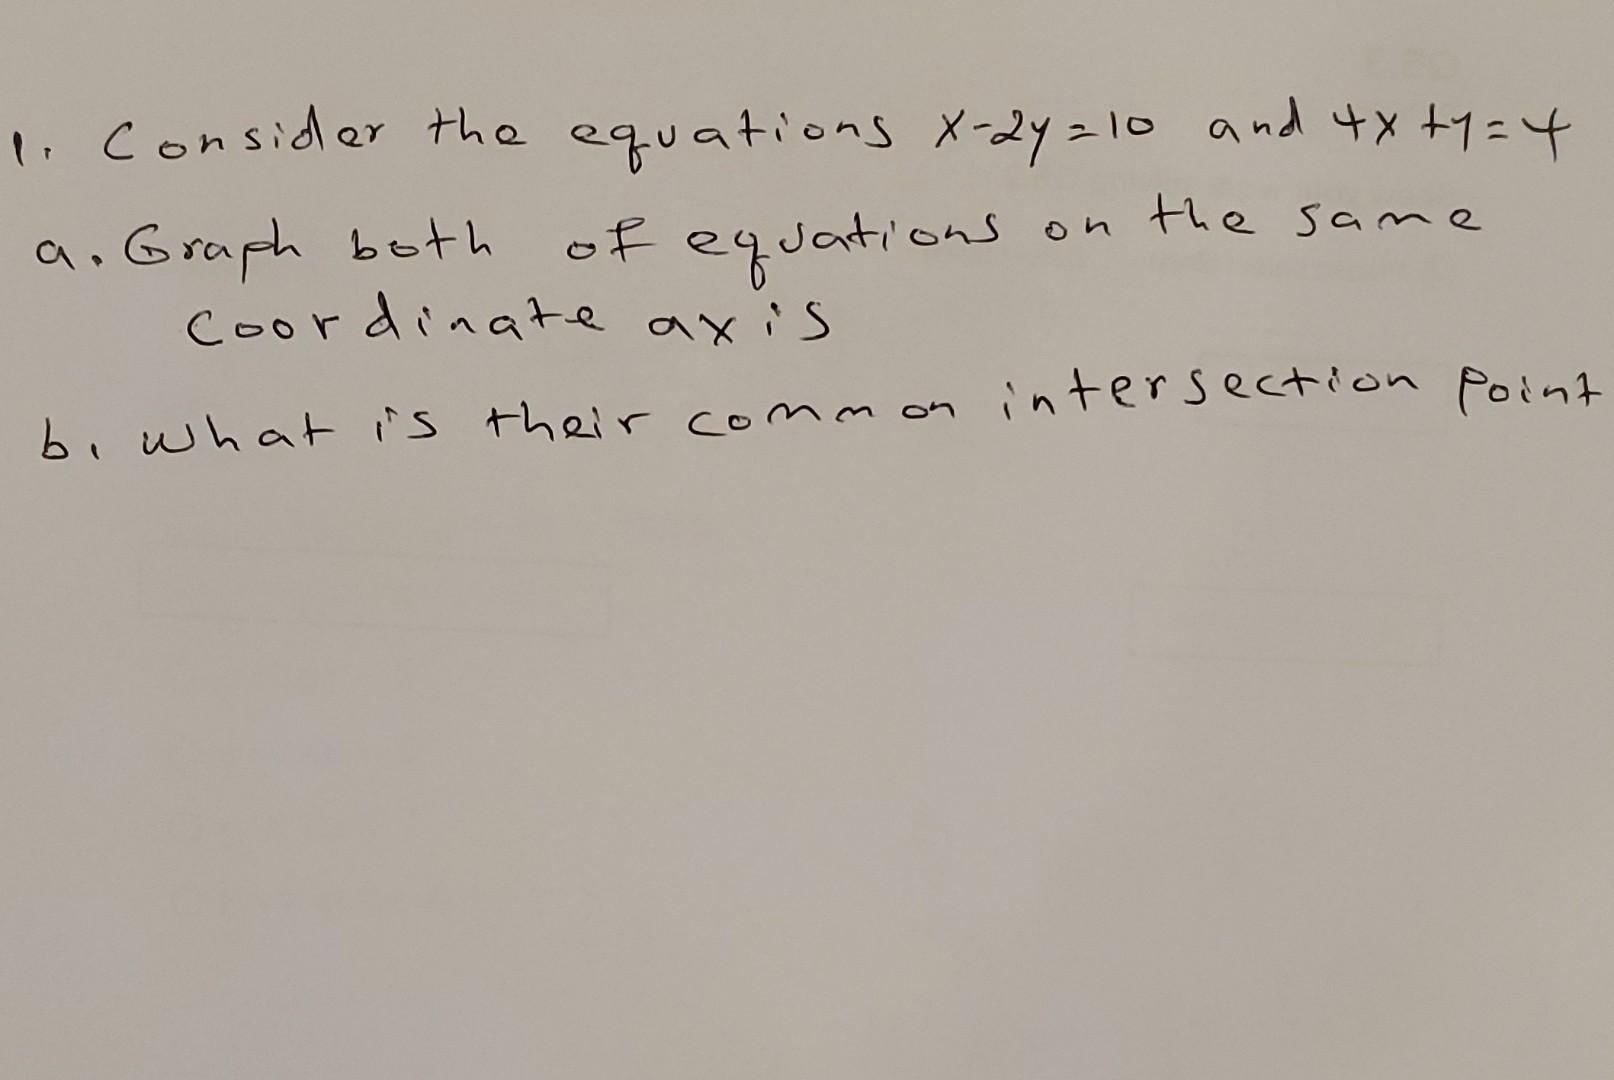 1. Consider the equations x-2y=10 and 4x+y=4
a. Graph both of equations on the same
coordinate axis
b. what is their common intersection point